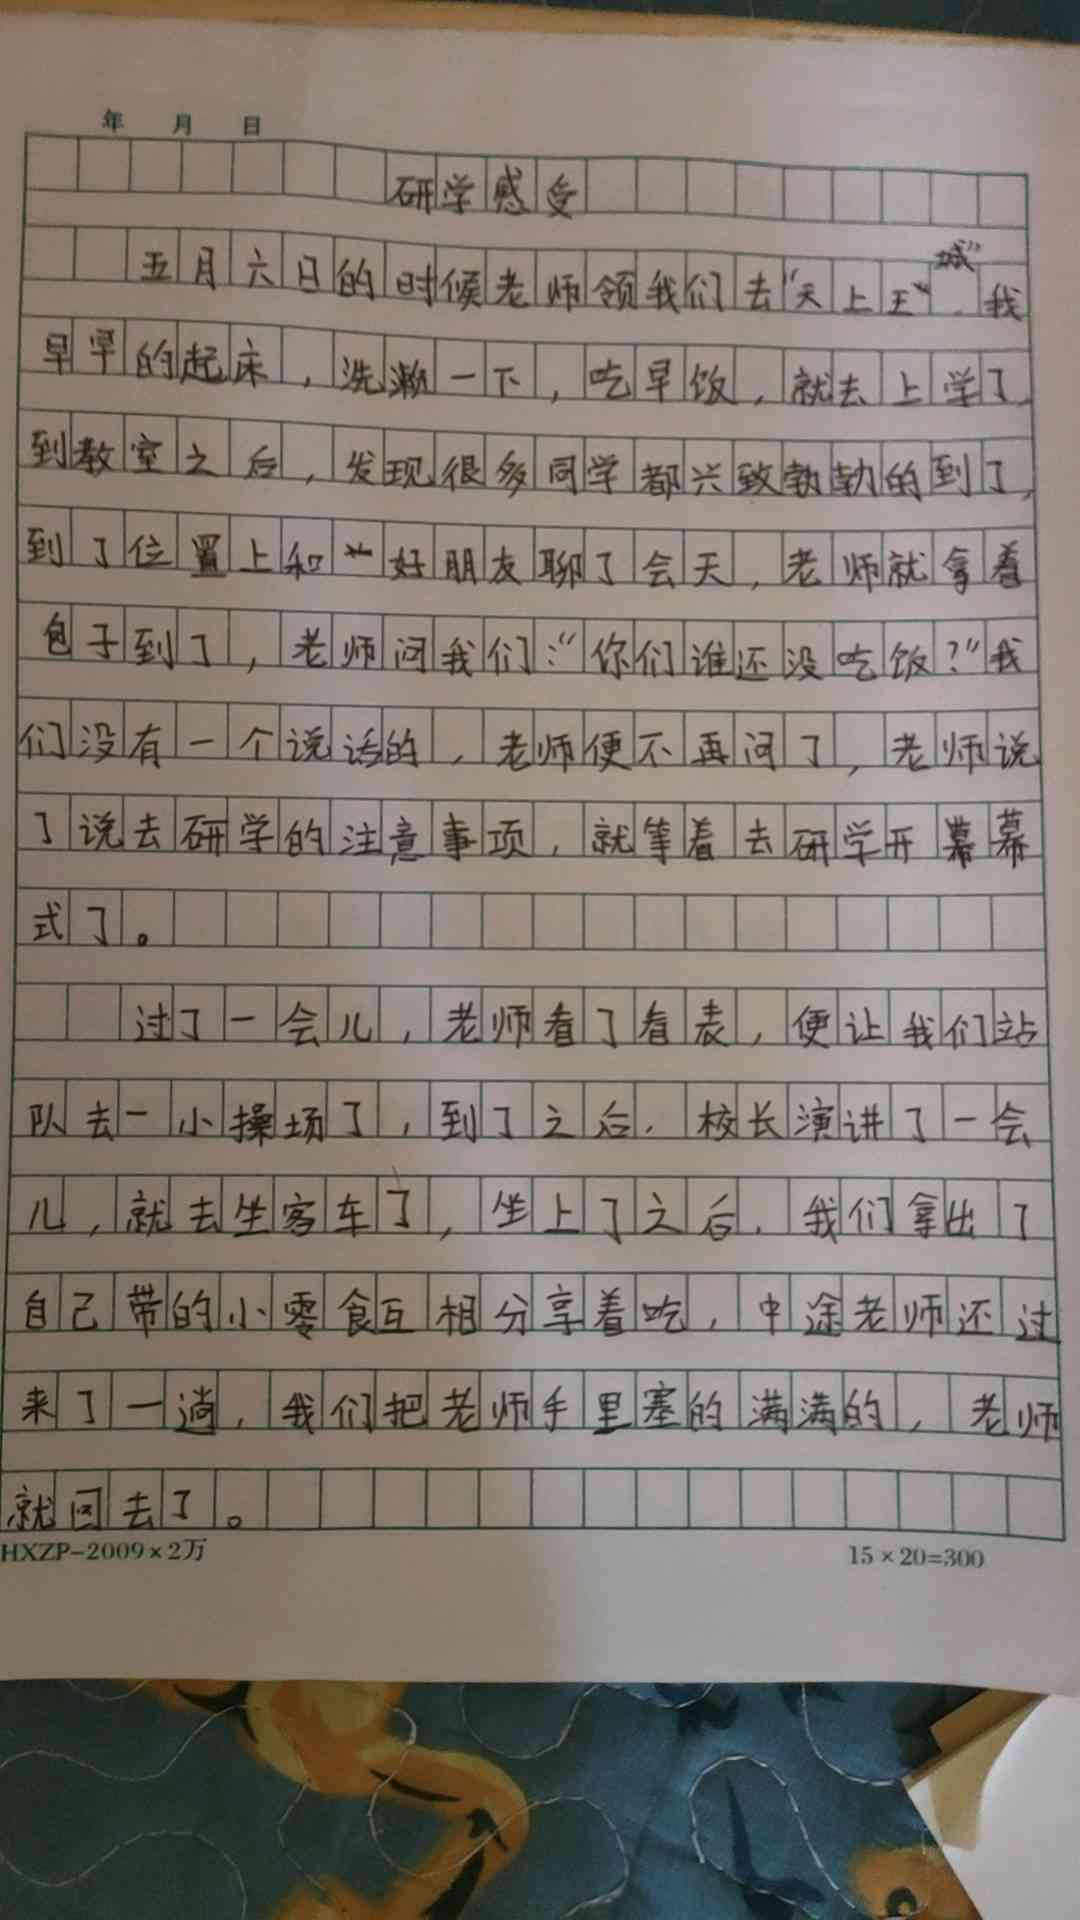 年 月 日
研学感受
五月六日的时候老师领我们去“天上王城”,我
早早的起床,洗漱一下,吃早饭,就去上学了,
到教室之后,发现很多同学都兴致勃勃的到了,
到了位置上和好朋友聊了会天,老师就拿着
包子到了,老师问我们:“你们谁还没吃饭?”我
们没有一个说话的,老师便不再问了,老师说
了说去研学的注意事项,就等着去研学开幕幕
式了。
过了一会儿,老师看了看表,便让我们站
队去一小操场了,到了之后,校长演讲了一会
儿,就去坐客车了,坐上了之后,我们拿出了
自己带的小零食互相分享着吃,中途老师还过
来了一趟,我们把老师手里塞的满满的,老师
就回去了。
HXZP-2009×2万 15×20=300